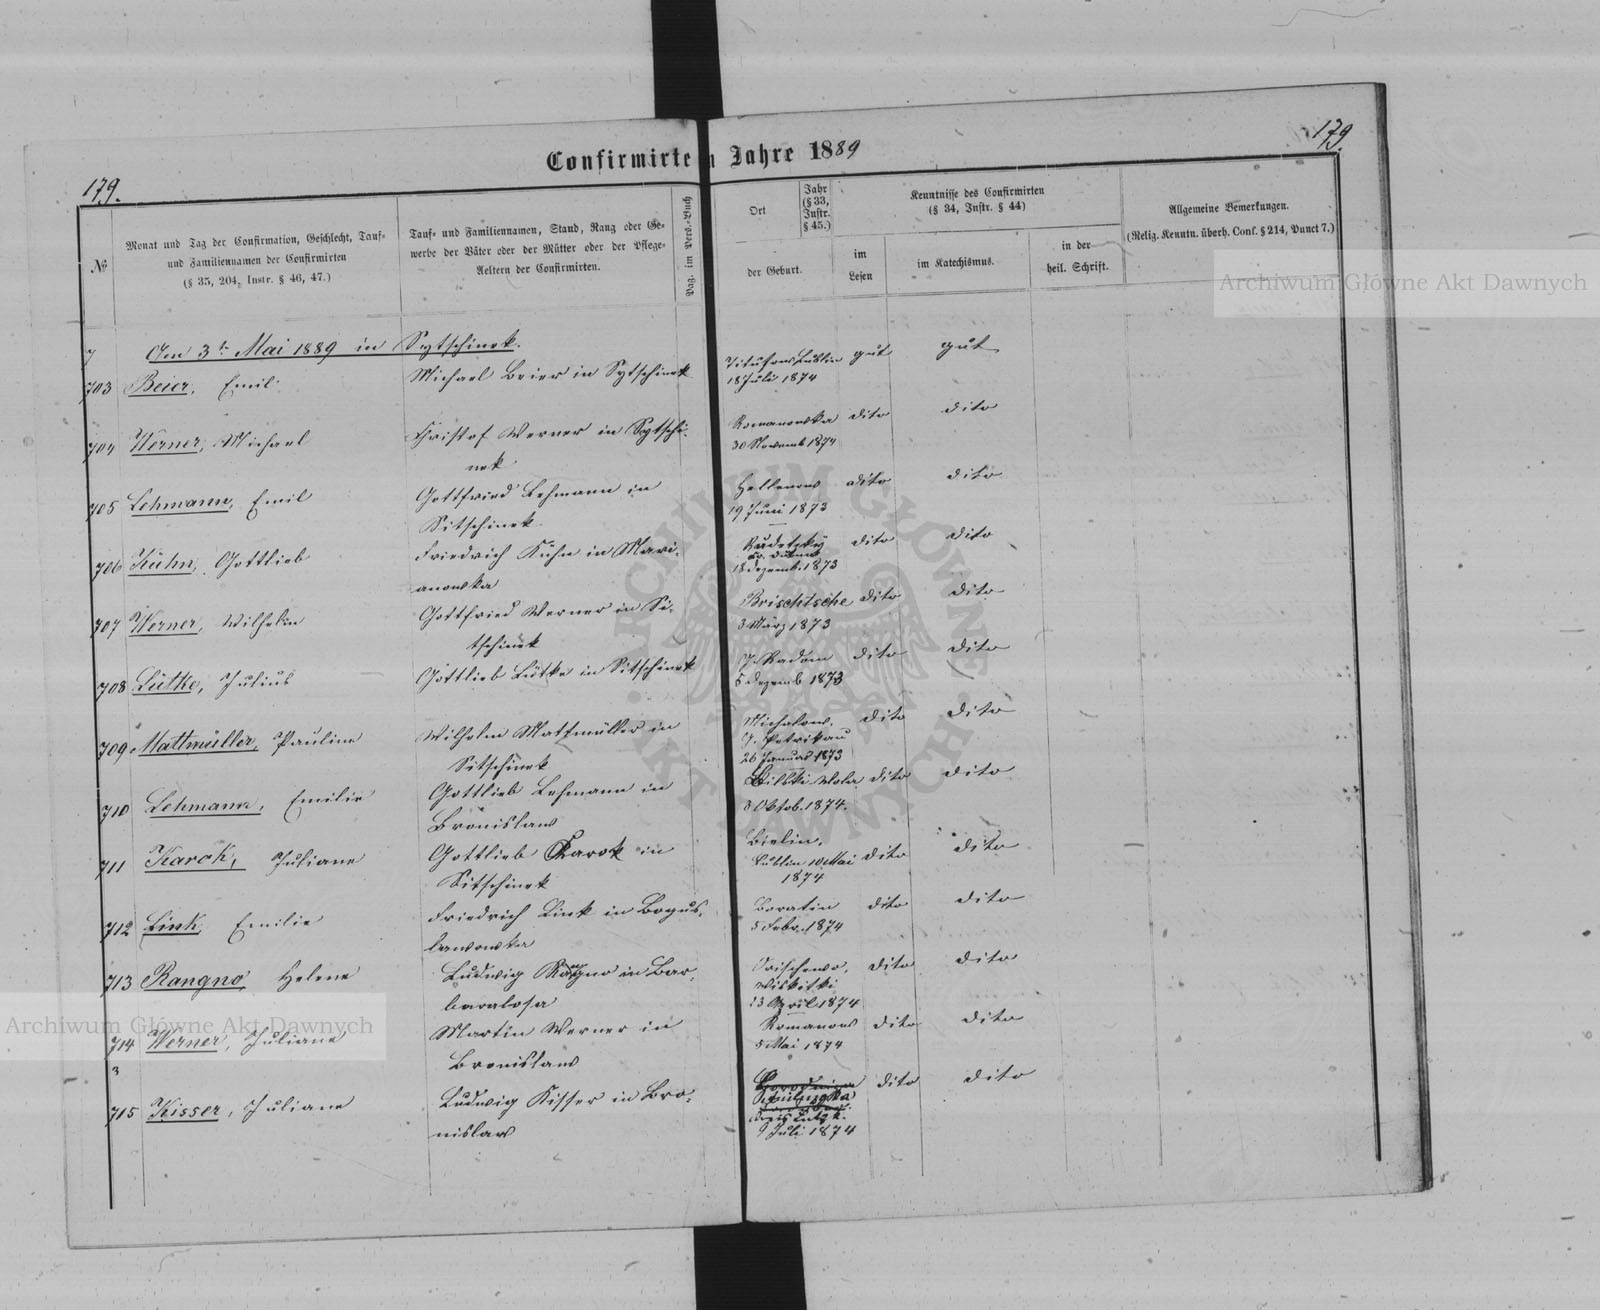 Confirmirte im Jahre 1889
179.
179.
№
Monat und Tag der Confirmation, Geschlecht, Tauf-
und Familiennamen der Confirmirten
(§ 35, 204, Instr. § 46, 47.)
Tauf- und Familiennamen, Stand, Rang oder Ge-
werbe der Väter oder der Mütter oder der Pflege-
Aeltern der Confirmirten.
Pag. im Pers.-Buch
Ort
Jahr
(§ 33,
Instr.
§ 45.)
der Geburt.
Kenntnisse des Confirmirten
(§ 34, Instr. § 44)
im
Lesen
im Katechismus.
in der
heil. Schrift.
Allgemeine Bemerkungen.
(Relig. Kenntn. überh. Conf. § 214, Punct 7.)
Am 3ten Mai 1889 in Sytschinek.
703 Beier, Emil
Michael Beier in Sytschinek
Lublin gut gut
18 Juli 1874
704 Werner, Michael
Christof Werner in Sytschi-
nek
Romanowka dito dito
30 Novemb 1874
705 Lehmann, Emil
Gottfried Lehmann in
Sitschinek
Hellenow dito dito
19 Juni 1873
706 Kühn, Gottlieb
Friedrich Kühn in Mari-
anowka
dito dito
18 Dezemb. 1873
707 Werner, Wilhelm
Gottfried Werner in Si-
tschinek
Brischtsche dito dito
3 März 1873
708 Lütke, Julius
Gottlieb Lütke in Sitschinek
G. Radom dito dito
5 Dezemb 1873
709 Mattmüller, Pauline
Wilhelm Mattmüller in
Sitschinek
Michalow. dito dito
G. Petrikau
26 Januar 1873
710 Lehmann, Emilie
Gottlieb Lehmann in
Bronislaw
Wola dito dito
3 Oktob. 1874.
711 Karok, Juliane
Gottlieb Karok in
Sitschinek
Bielin,
Lublin 10 Mai dito dito
1874
712 Link, Emilie
Friedrich Link in Bogus-
lawowka
Boratin dito dito
5 Febr. 1874
713 Rangno Helene
Ludwig Rangno in Bar-
baralosa
dito dito
Wiskitki
23 April 1874
714 Werner, Juliane
Martin Werner in
Bronislaw
Romanow dito dito
5 Mai 1874
3
715 Kisser, Juliane
Ludwig Kisser in Bro-
nislaw
dito dito
9 Juli 1874
Archiwum Główne Akt Dawnych
Archiwum Główne Akt Dawnych
ARCHIWUM GŁÓWNE AKT DAWNYCH